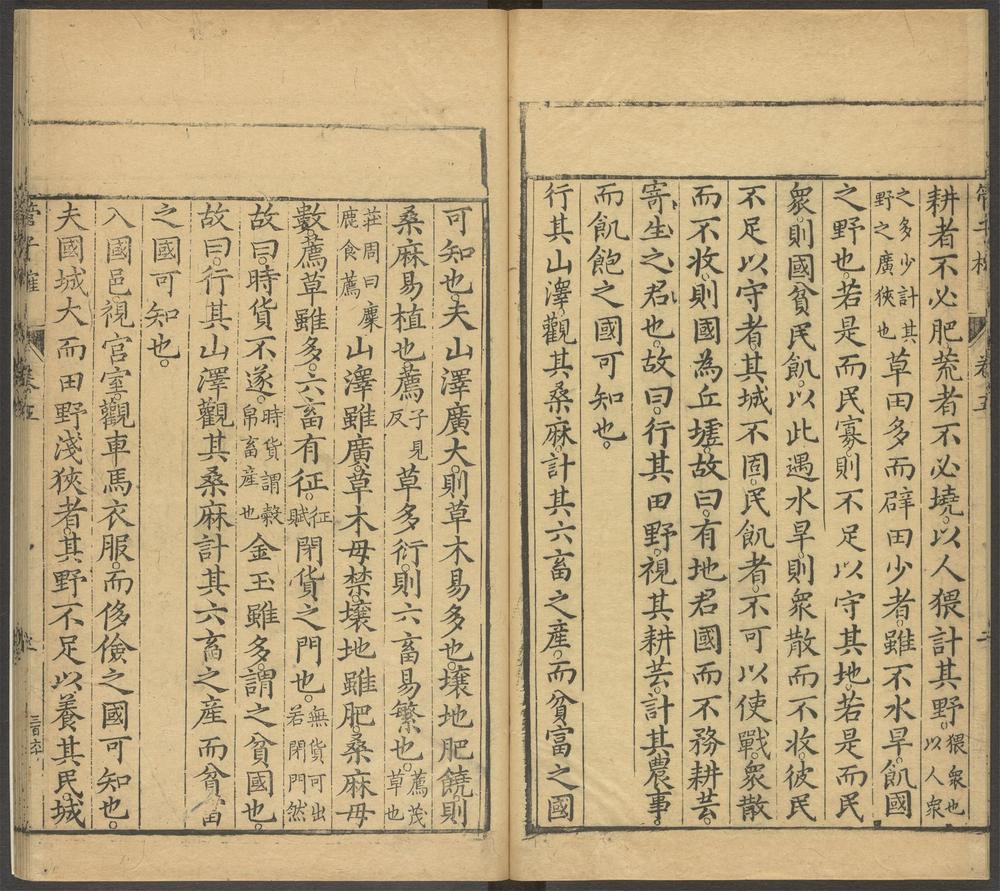 管子榷 卷五
耕者不必肥。荒者不必墝。以人猥計其野。猥衆也以人衆
之多少計其野之廣狹也草田多而辟田少者。雖不水旱。飢國
之野也。若是而民寡。則不足以守其地。若是而民
衆。則國貧民飢。以此遇水旱。則衆散而不收。彼民
不足以守者。其城不固。民飢者。不可以使戰。衆散
而不收。則國為丘墟。故曰。有地君國而不務耕芸。
寄生之君也。故曰。行其田野。視其耕芸。計其農事。
而飢飽之國可知也。
行其山澤。觀其桑麻。計其六畜之產。而貧富之國
可知也。夫山澤廣大。則草木易多也。壤地肥饒。則
桑麻易植也。薦子見反草多衍。則六畜易繁也。薦茂草也
莊周曰麋鹿食薦山澤雖廣。草木毋禁。壤地雖肥。桑麻毋
數。薦草雖多。六畜有征。征賦閉貨之門也。無貨可出若閉門然
故曰。時貨不遂。時貨謂穀帛畜產也金玉雖多。謂之貧國也。
故曰。行其山澤觀其桑麻計其六畜之產而貧富
之國可知也。
入國邑。視宮室。觀車馬衣服。而侈儉之國可知也。
夫國城大而田野淺狹者。其野不足以養其民。城
管子榷 卷五